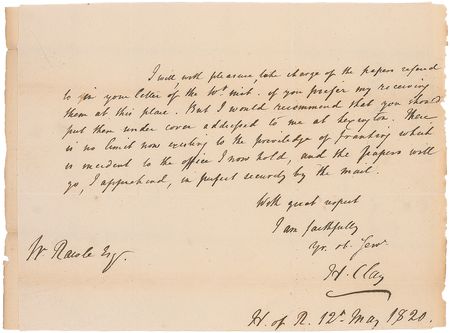 I will, with pleasure, take charge of the papers referred
to in your letter of the inst. if you prefer my receiving
them at this place. But I would recommend that you should
put them under cover addressed to me at Lexington. There
is no limit now existing to the priviledge of franking which
is incident to the office I now hold, and the papers will
go, I apprehend, in perfect security by the mail.
With great respect
I am faithfully
Yr. ob. Serv.
H. Clay
W. Rawle Esq.
H. of R. 12h. May 1820.